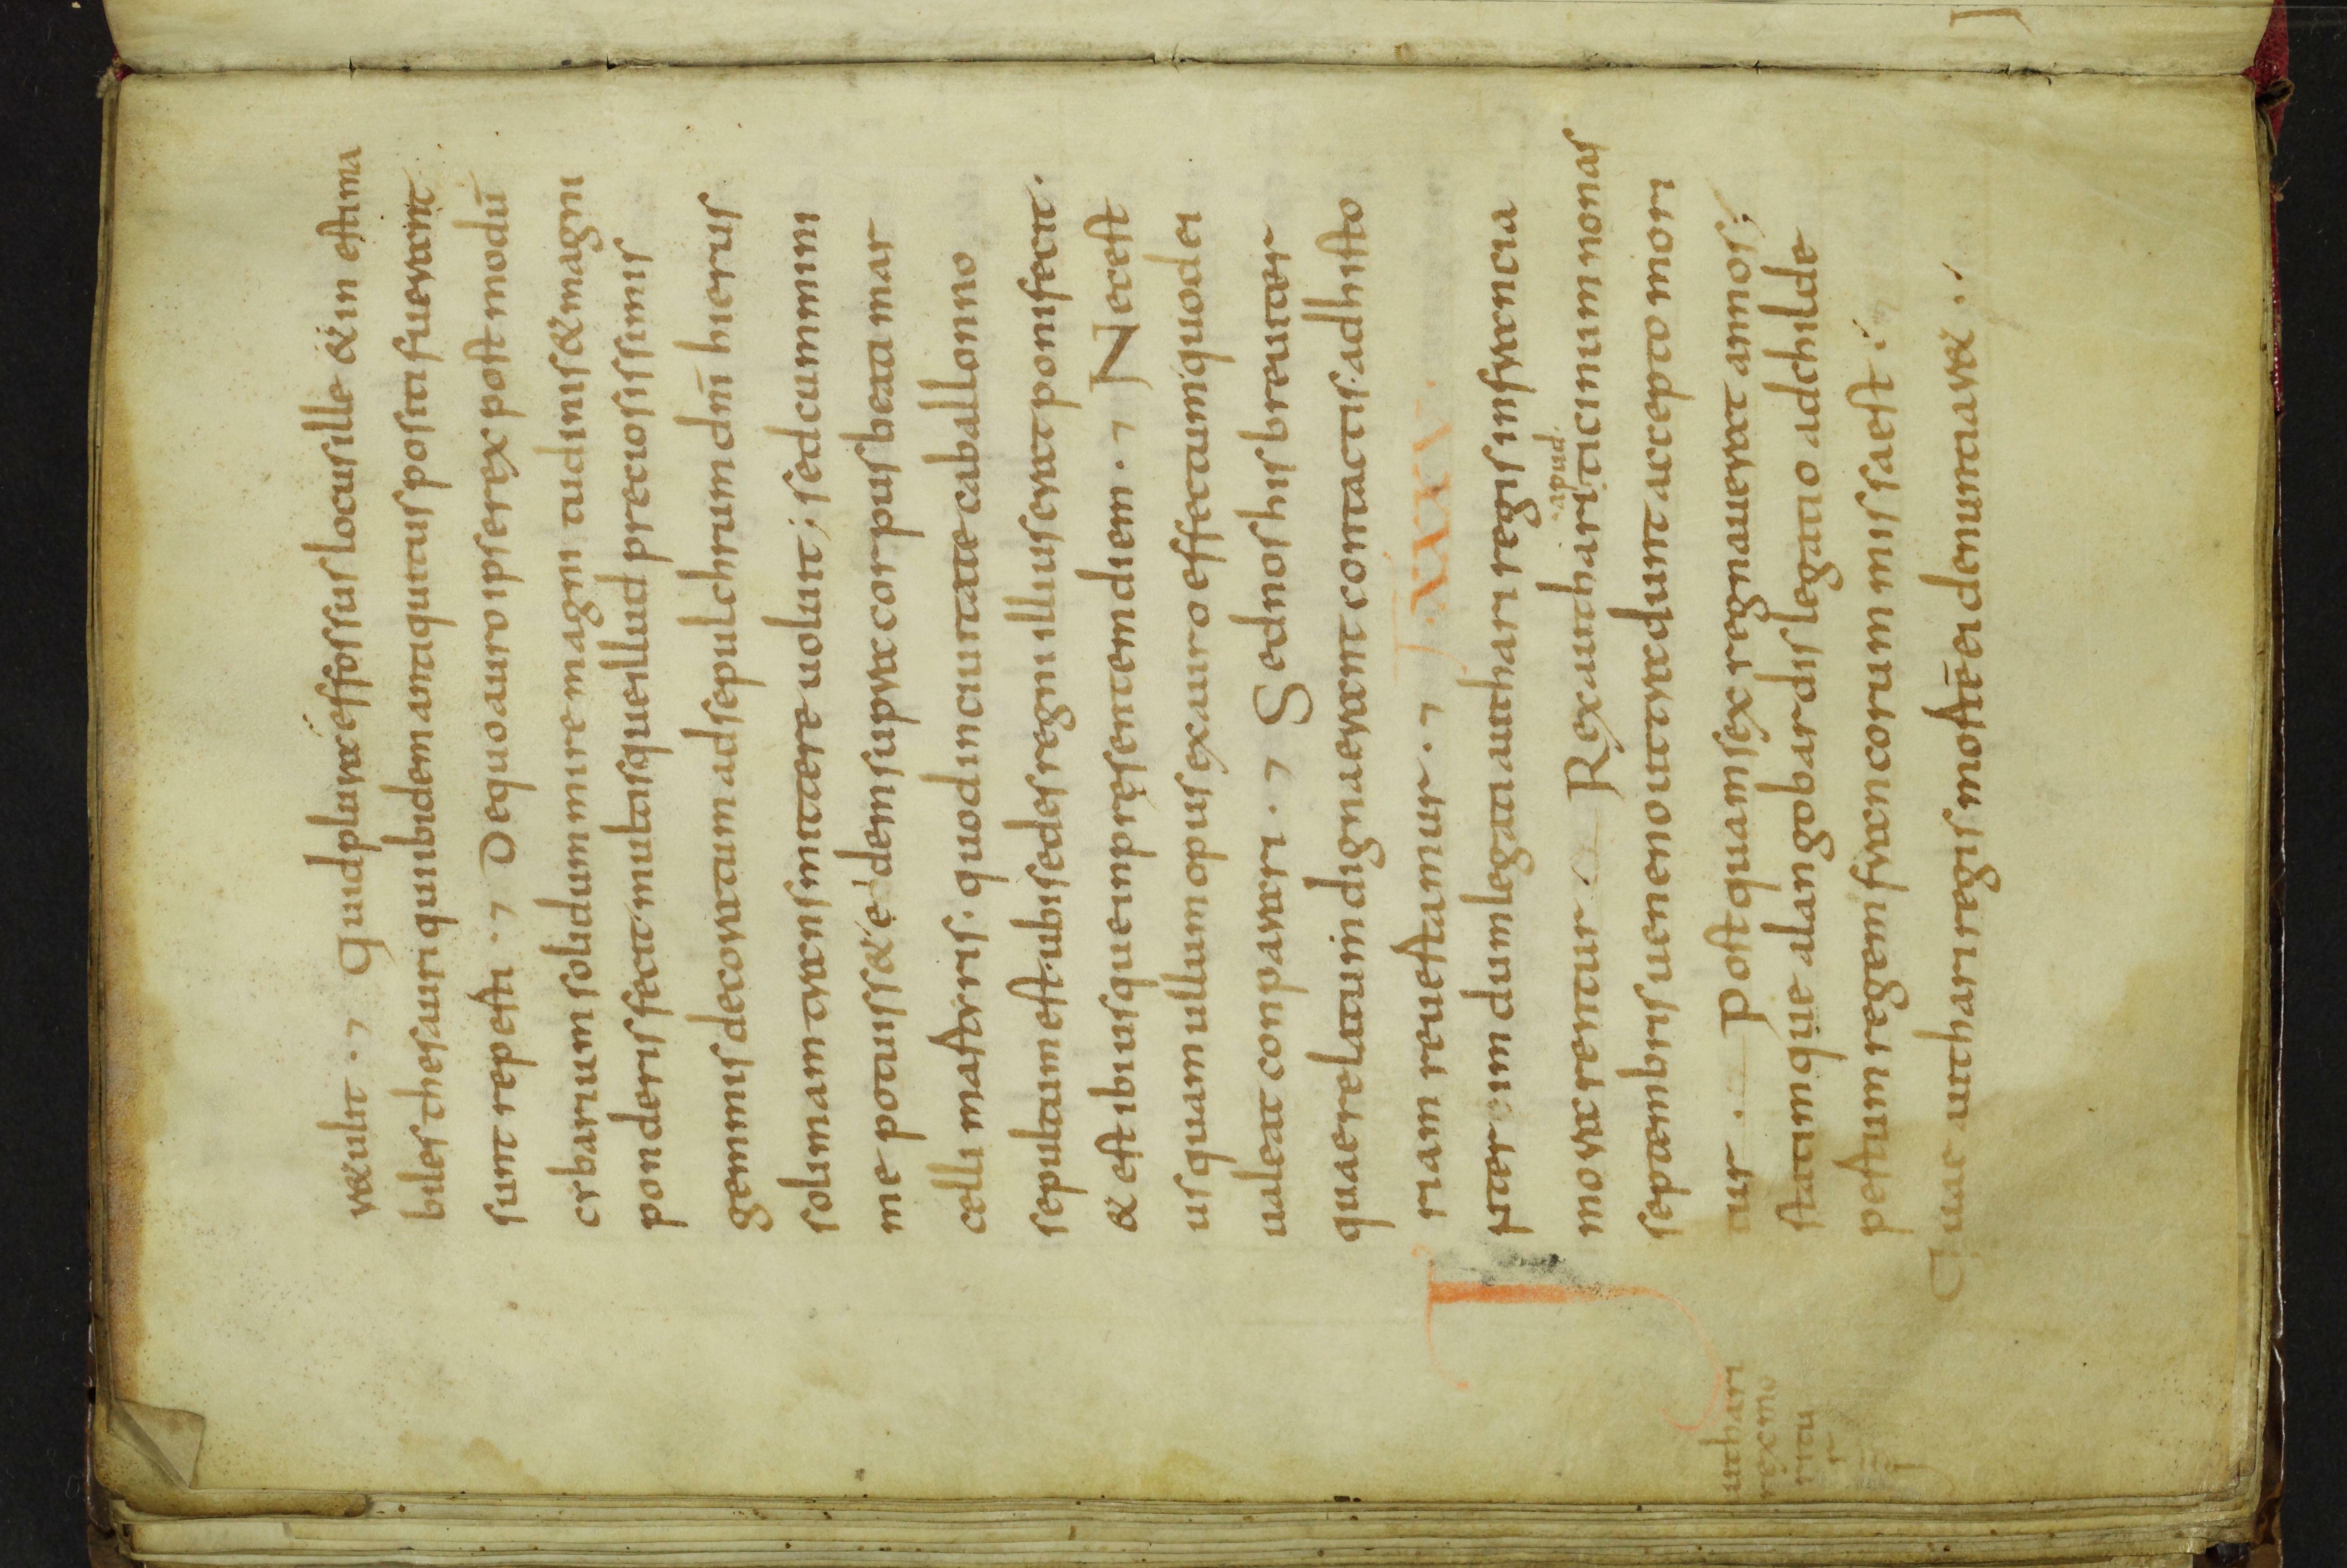 tr&ulit ·, Quid plura effossus locus ille & in estima
biles thesauri qui ibidem antiquitus positi fuerant
sunt reperti ·, De quo auro ipse rex post modū
cybarium solidum mire magnitudinis & magni
ponderis fecit multisque illud preciosissimis
gemmis decoratum ad sepulchrum dn̄i hierus
solimam transmittere uoluit; sed cum mini
me potuiss& edem supra corpus beati mar
celli mastyris · quod in ciuitate caballonno
sepultum est · ubi sedes regni illius erat poni fecit ·
& est ibi usque in presentem diem ·, Nec est
usquam ullum opus ex auro effectum quod ei
ualeat conparari ·, Sed nos his breuiter
quae relatu indigna erant contactis · ad histo
riam reuestamur ·, XXXV ·
Interim dum legati authari regis in francia
mora rentur · Rex authari apud ticinum nonas
septembris ueneno ut tradunt accepto mori
tur · Post quam sex regnauerat annos;
statimque a langobardis legatio ad childe
pestum regem francorum missa est ·
Quae authari regis mostē ei denuntiar& ·
uthari
rex mo
ritu
r